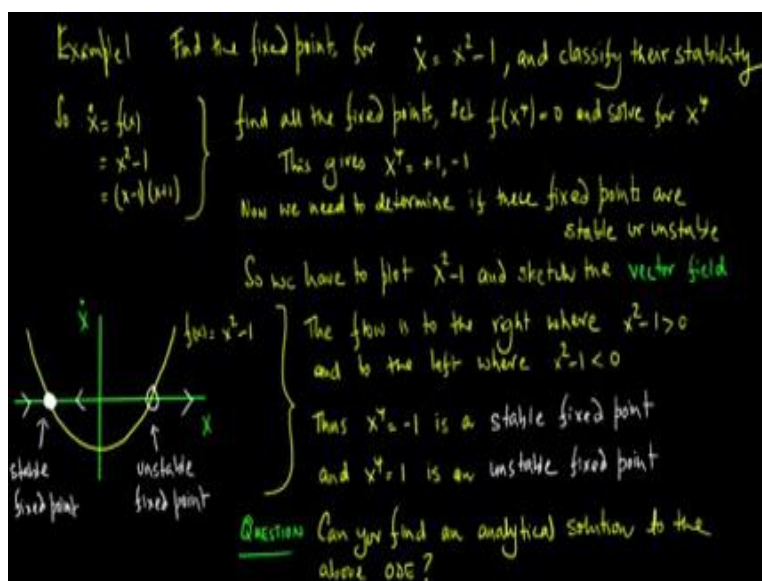 Example 1 Find the fixed points for ẋ = x²-1, and classify their stability
So ẋ = f(x)
= x²-1
= (x-1)(x+1)
find all the fixed points, set f(x*)=0 and solve for x*
This gives x* = +1, -1
Now we need to determine if these fixed points are
stable or unstable
So we have to plot x²-1 and sketch the vector field
ẋ
f(x) = x²-1
x
stable
fixed point
unstable
fixed point
The flow is to the right where x²-1>0
and to the left where x²-1<0
Thus x* = -1 is a stable fixed point
and x* = 1 is an unstable fixed point
QUESTION Can you find an analytical solution to the
above ODE?